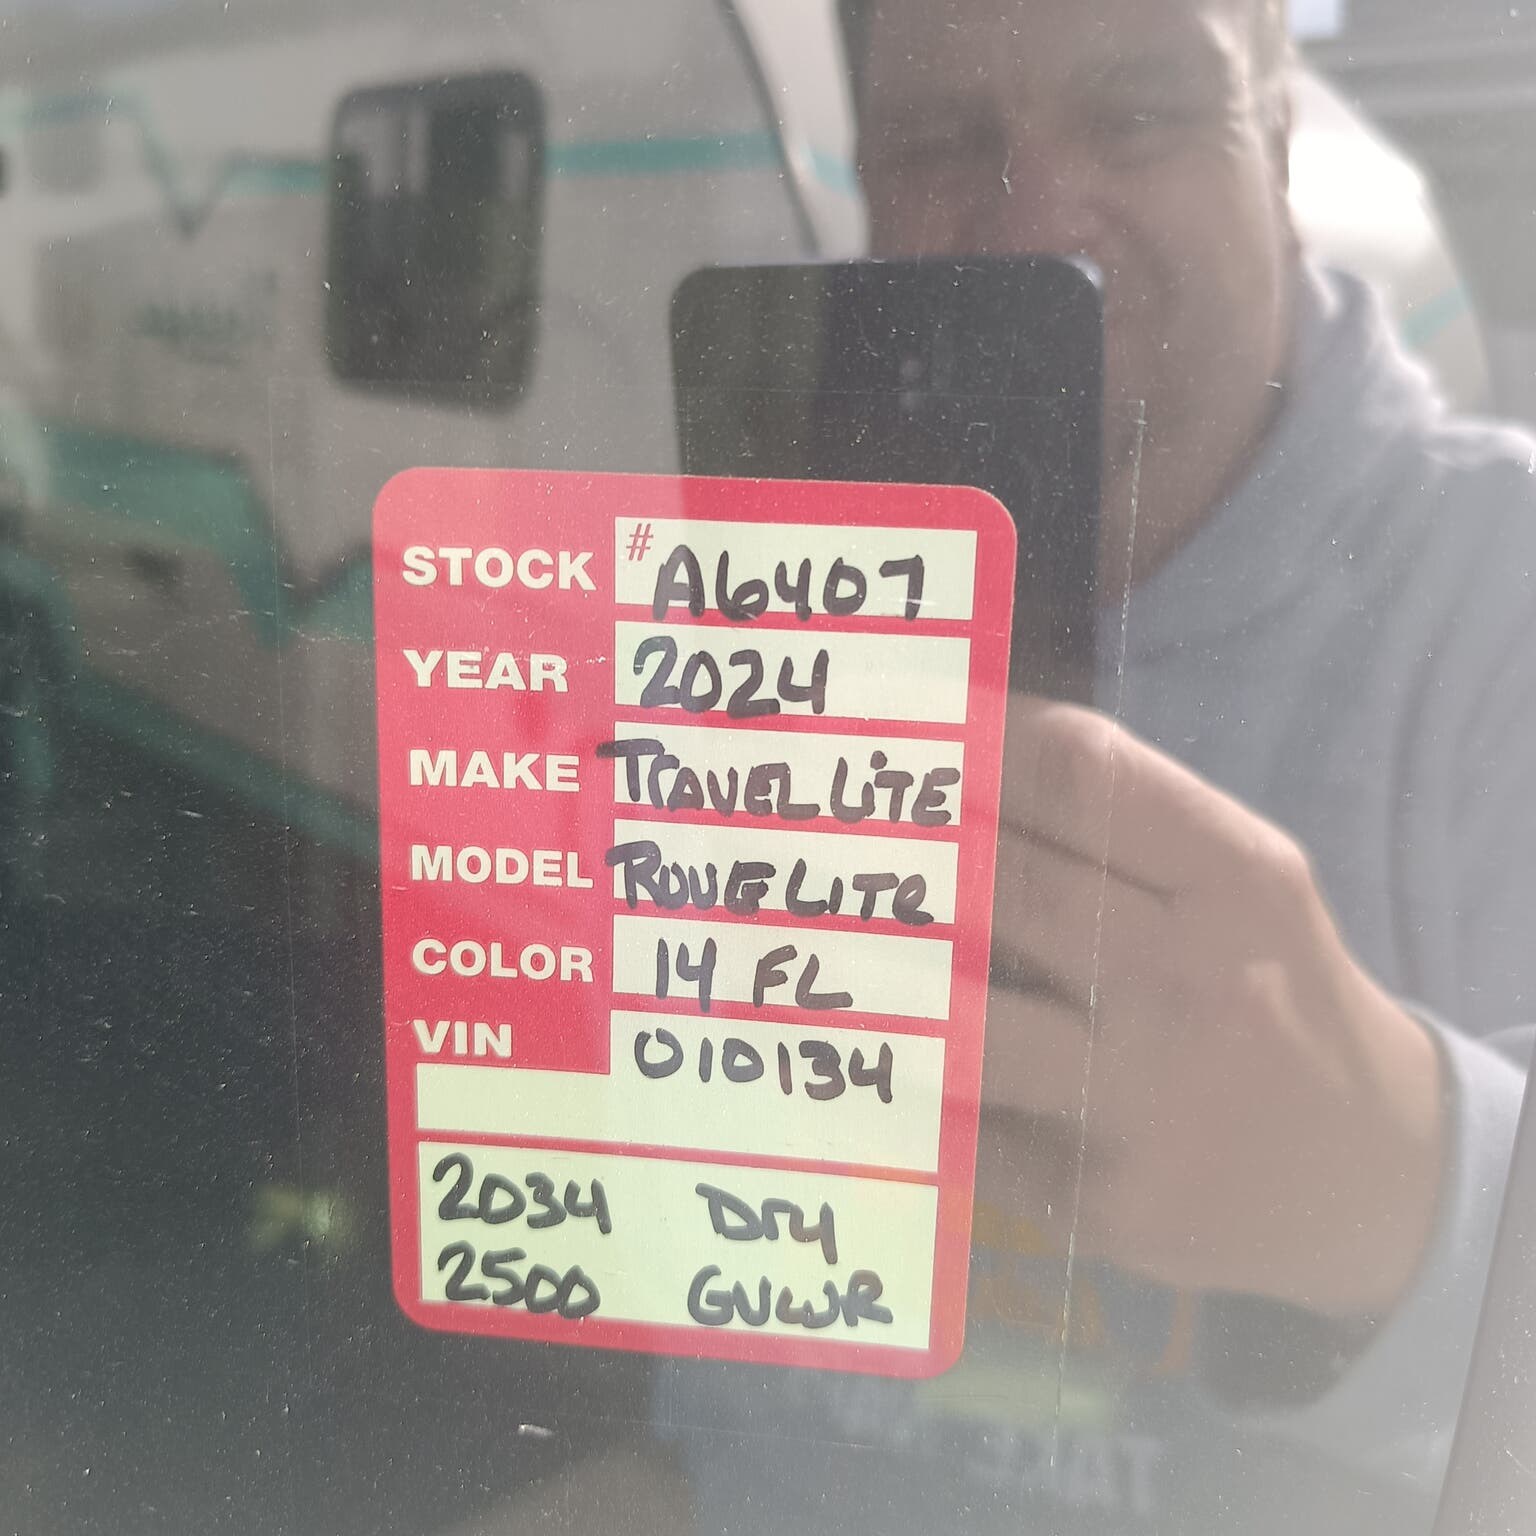 STOCK # A6407
YEAR 2024
MAKE TRAVEL LiTE
MODEL ROVE LITe
COLOR 14 FL
VIN 010134
2034 Dry
2500 GVWR